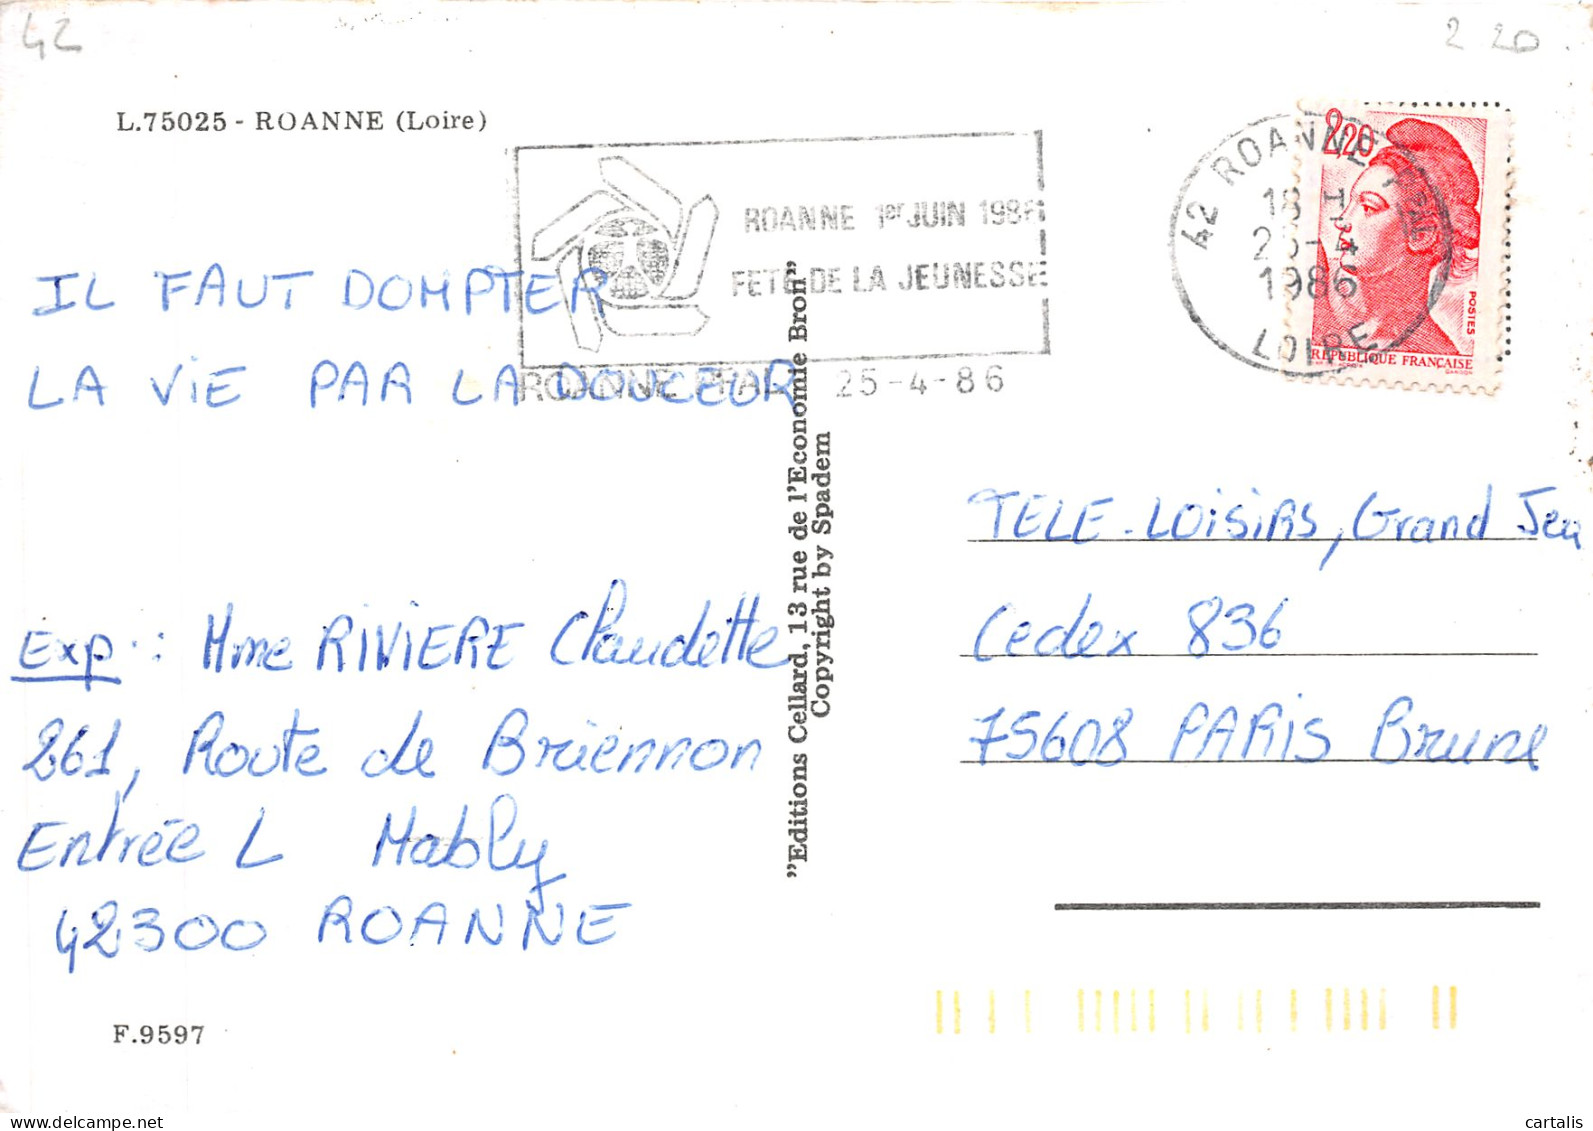 42
2 20
L.75025 - ROANNE (Loire)
ROANNE 1er JUIN 1986
FETE DE LA JEUNESSE
ROANNE PPAL 25-4-86
42 ROANNE PPAL
18 H
25-4
1986
LOIRE
2,20
POSTES
REPUBLIQUE FRANÇAISE
IL FAUT DOMPTER
LA ViE PAR LA DOUCEUR
Exp : Mme RIVIERE Claudette
261, Route de Briennon
Entrée L Mably
42300 ROANNE
F.9597
"Editions Cellard, 13 rue de l'Economie Bron"
Copyright by Spadem
TELE-LOiSiRS, Grand Jeu
Cedex 836
75608 PARiS Brune
cartalis